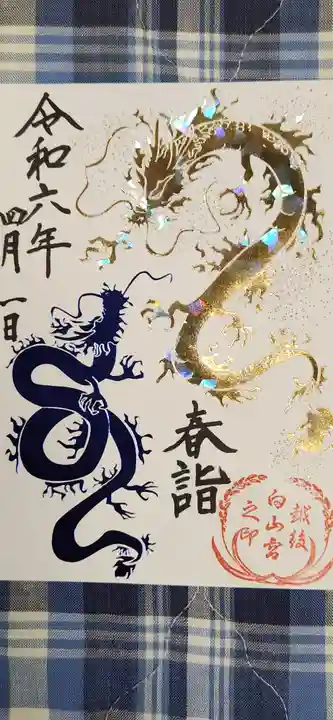 令和六年
四月一日
春詣
越後
白山宮
之印